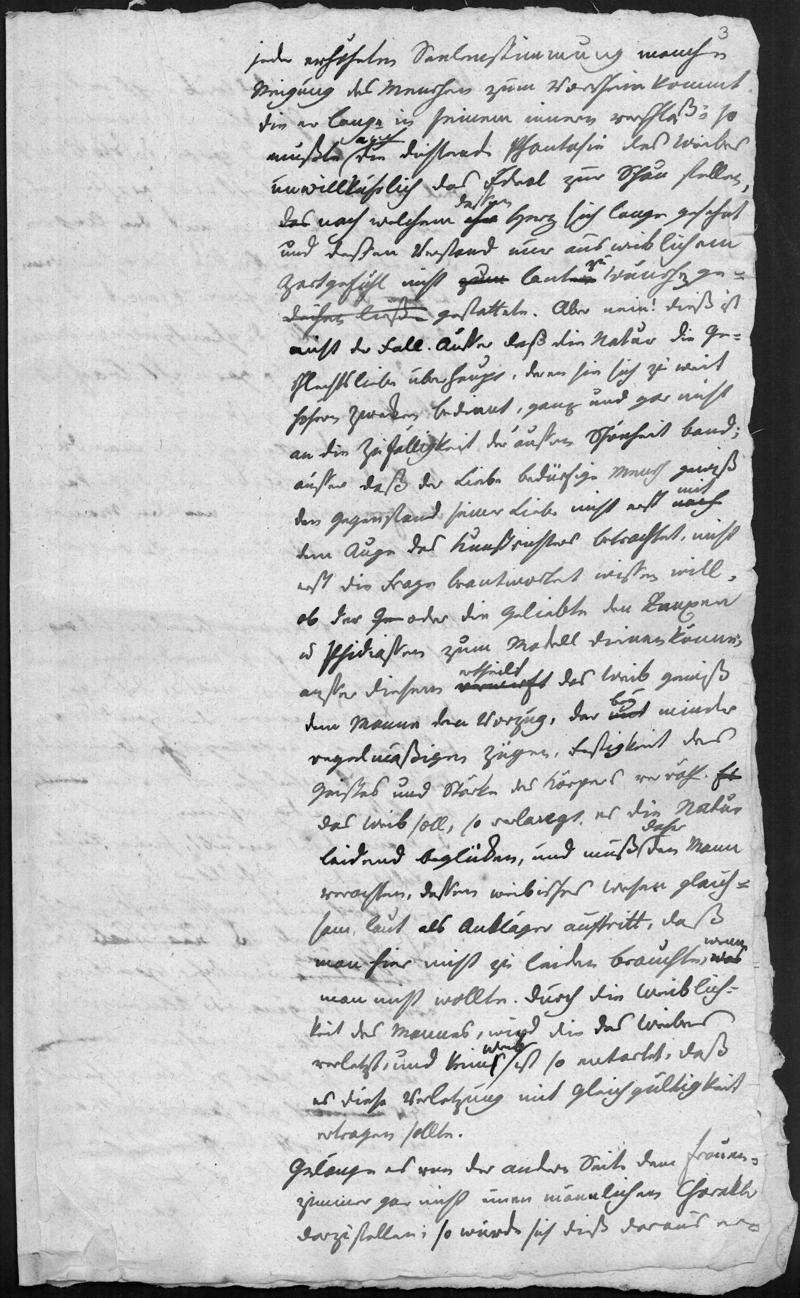 3
jeder erhöheten Seelenstimmung manche
Neigung des Menschen zum Vorschein kommt
die er lange in seinem innern verschloß; so
mußte auch die dichtende Phantasie des Weibes
unwillkührlich das Ideal zur Schau stellen,
das nach welchem dessen ihr Herz sich lange gesehnt
und dessen Verstand nur aus weiblichem
Zartgefühl nicht zum laut zu wünschen ge-
deihen ließ gestattete. Aber nein! dieß ist
nicht der Fall. Ausser daß die Natur die Ge-
schlechtsliebe überhaupt, deren sie sich zu weit
höhern Zweken bedient, ganz und gar nicht
an die Zufälligkeit der äussern Schönheit band;
ausser daß der Liebe bedürftige Mensch gewiß
den Gegenstand seiner Liebe nicht erst mit nach
dem Auge des Kunstrichters betrachtet, nicht
erst die Frage beantwortet wissen will,
ob der Ge- oder die Geliebte den Zeuxen
u Phidiassen zum Modell dienen könne;
ausser diesem ertheilt verwirft das Weib gewiß
dem Manne den Vorzug, der bey und minder
regelmäßigen Zügen, Festigkeit des
Geistes und Stärke des Körpers verräth. Es
das Weib soll, so verlangt es die Natur
leidend beglüken, und muß daher den Mann
verachten, dessen weibisches Wesen gleich-
sam laut als Ankläger auftritt, daß
man hier nicht zu leiden brauchte, wenn was
man nicht wollte. Durch die Weiblich-
keit des Mannes, wird die des Weibes
verletzt, und keines Weib ist so entartet, daß
es diese Verletzung mit Gleichgültigkeit
ertragen sollte.
Gelänge es von der andern Seite dem Frauen-
zimmer gar nicht einen männlichen Charakter
darzustellen; so würde sich dieß daraus er-